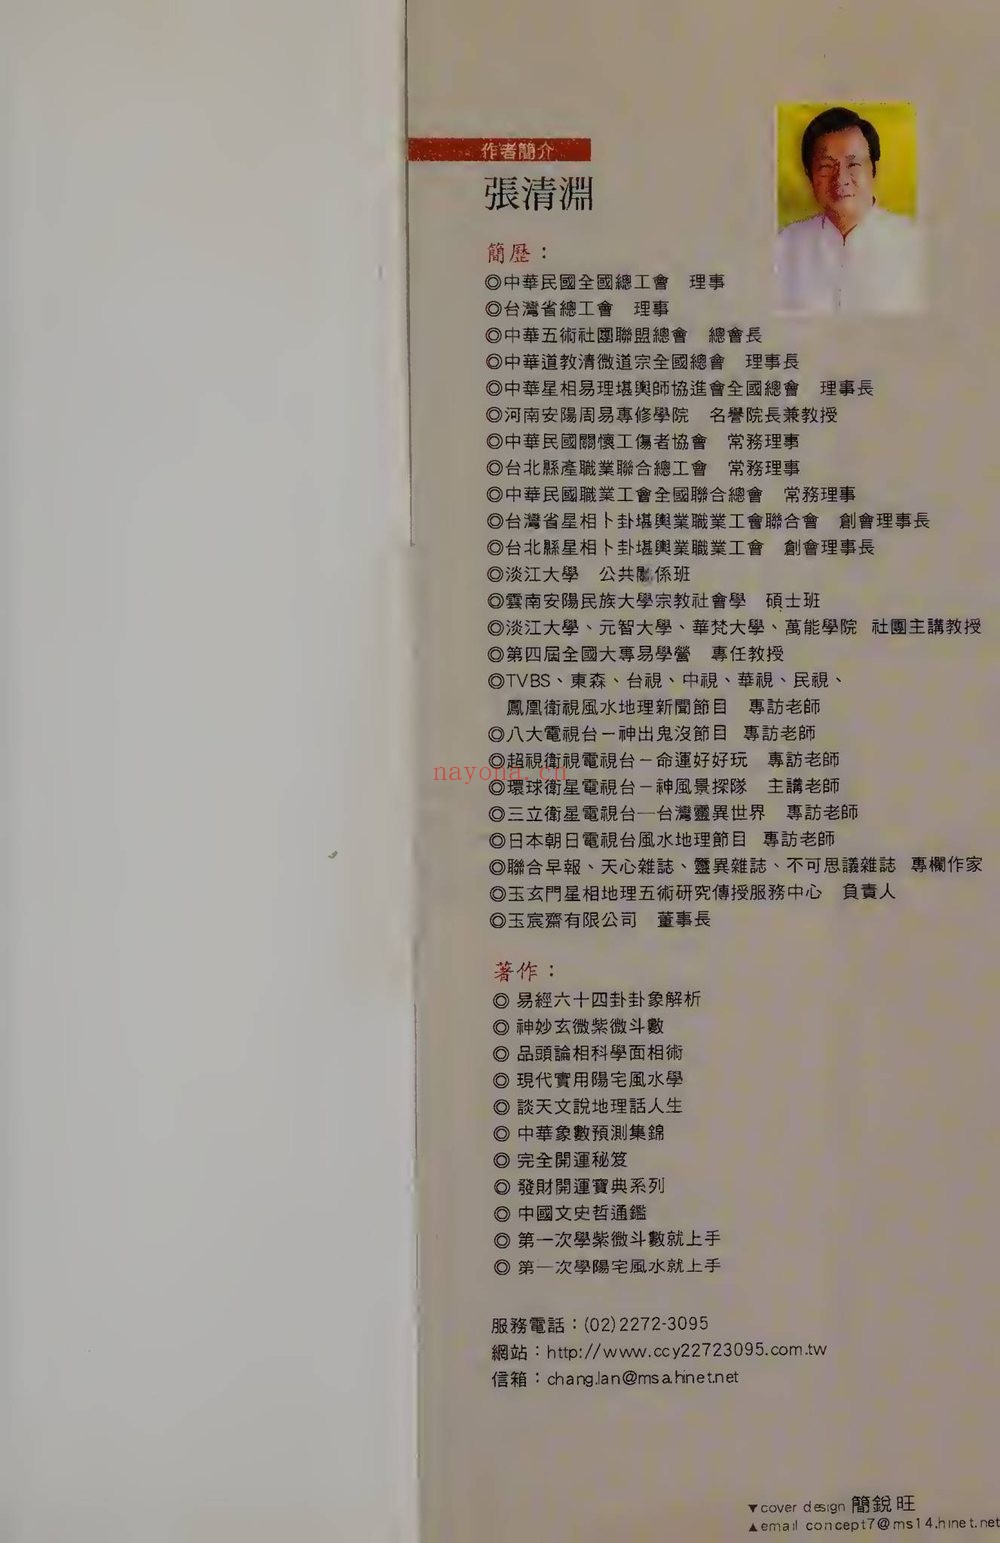 作者簡介
張清淵
簡歷：
◎中華民國全國總工會　理事
◎台灣省總工會　理事
◎中華五術社團聯盟總會　總會長
◎中華道教清微道宗全國總會　理事長
◎中華星相易理堪輿師協進會全國總會　理事長
◎河南安陽周易專修學院　名譽院長兼教授
◎中華民國關懷工傷者協會　常務理事
◎台北縣產職業聯合總工會　常務理事
◎中華民國職業工會全國聯合總會　常務理事
◎台灣省星相卜卦堪輿業職業工會聯合會　創會理事長
◎台北縣星相卜卦堪輿業職業工會　創會理事長
◎淡江大學　公共關係班
◎雲南安陽民族大學宗教社會學　碩士班
◎淡江大學、元智大學、華梵大學、萬能學院　社團主講教授
◎第四屆全國大專易學營　專任教授
◎TVBS、東森、台視、中視、華視、民視、
鳳凰衛視風水地理新聞節目　專訪老師
◎八大電視台－神出鬼沒節目　專訪老師
◎超視衛視電視台－命運好好玩　專訪老師
nayona.cn
◎環球衛星電視台－神風景探隊　主講老師
◎三立衛星電視台—台灣靈異世界　專訪老師
◎日本朝日電視台風水地理節目　專訪老師
◎聯合早報、天心雜誌、靈異雜誌、不可思議雜誌　專欄作家
◎玉玄門星相地理五術研究傳授服務中心　負責人
◎玉宸齋有限公司　董事長
著作：
◎ 易經六十四卦卦象解析
◎ 神妙玄微紫微斗數
◎ 品頭論相科學面相術
◎ 現代實用陽宅風水學
◎ 談天文說地理話人生
◎ 中華象數預測集錦
◎ 完全開運秘笈
◎ 發財開運寶典系列
◎ 中國文史哲通鑑
◎ 第一次學紫微斗數就上手
◎ 第一次學陽宅風水就上手
服務電話：(02)2272-3095
網站：http://www.ccy22723095.com.tw
信箱：chang.lan@msa.hinet.net
▼cover design 簡銳旺
▲email concept7@ms14.hinet.net